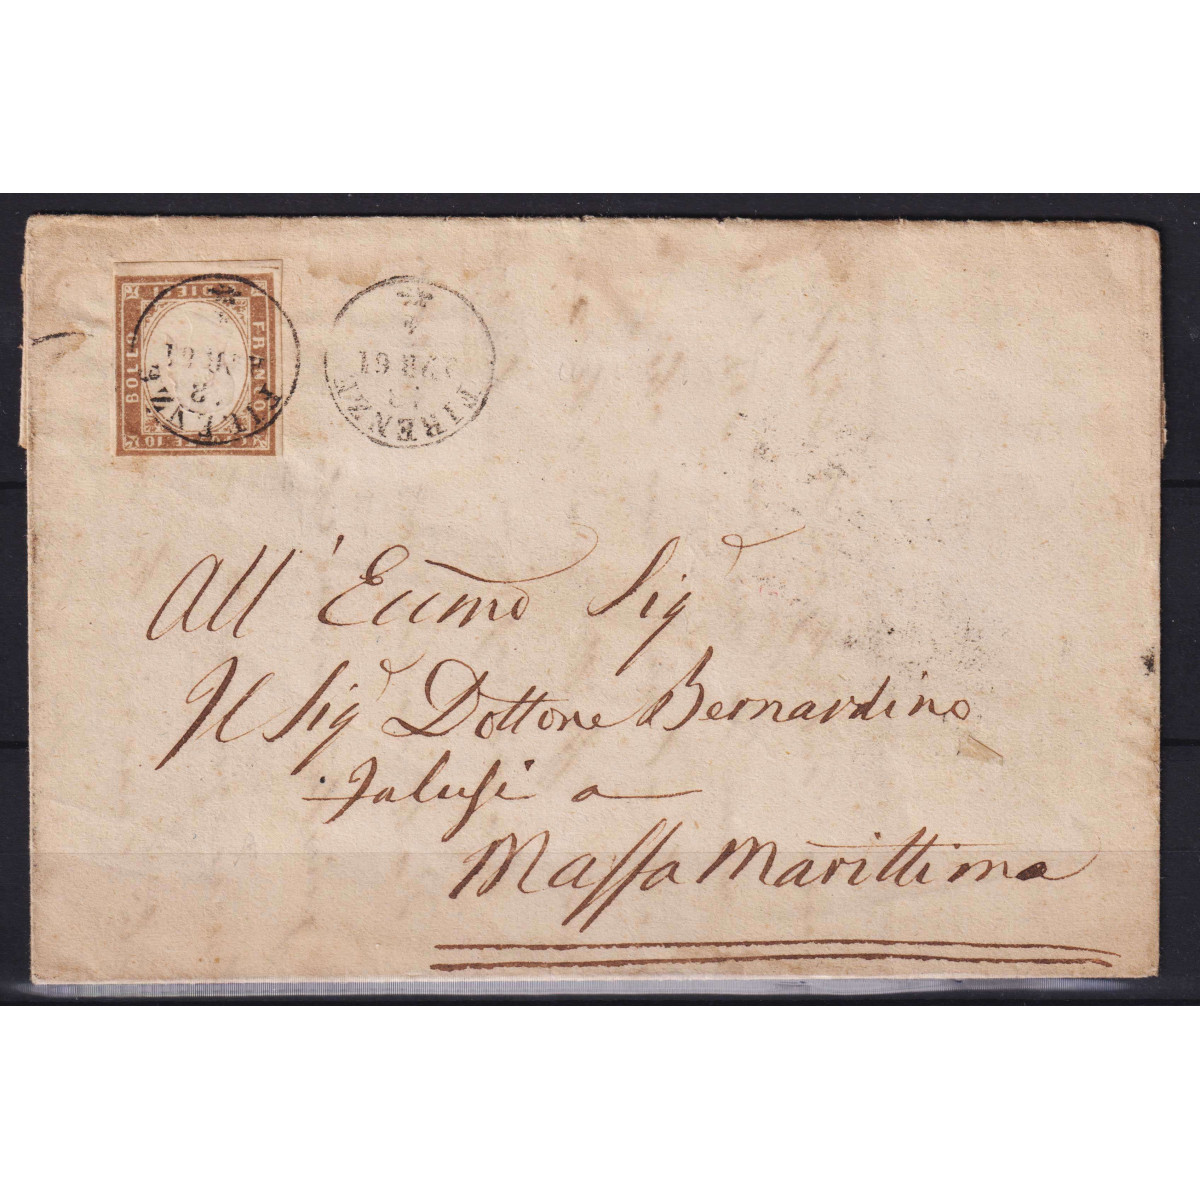 FRANCO
BOLLO
DIECI
10
FIRENZE
61
FIRENZE
APR 61
All' Eccmo Sigr
Il Sigr Dottore Bernardino
Falusi a
Massa Marittima